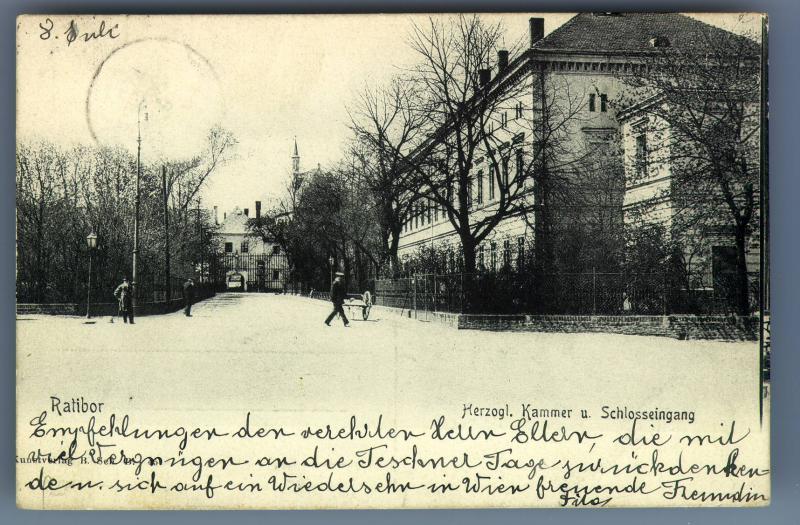 8. Juli
Ratibor
Herzogl. Kammer u. Schlosseingang
Empfehlungen den verehrten Herrn Eltern, die mit
viel Vergnügen an die Teschner Tage zurückdenken-
de u. sich auf ein Wiedersehn in Wien freuende Freundin
Kunstverlag B.